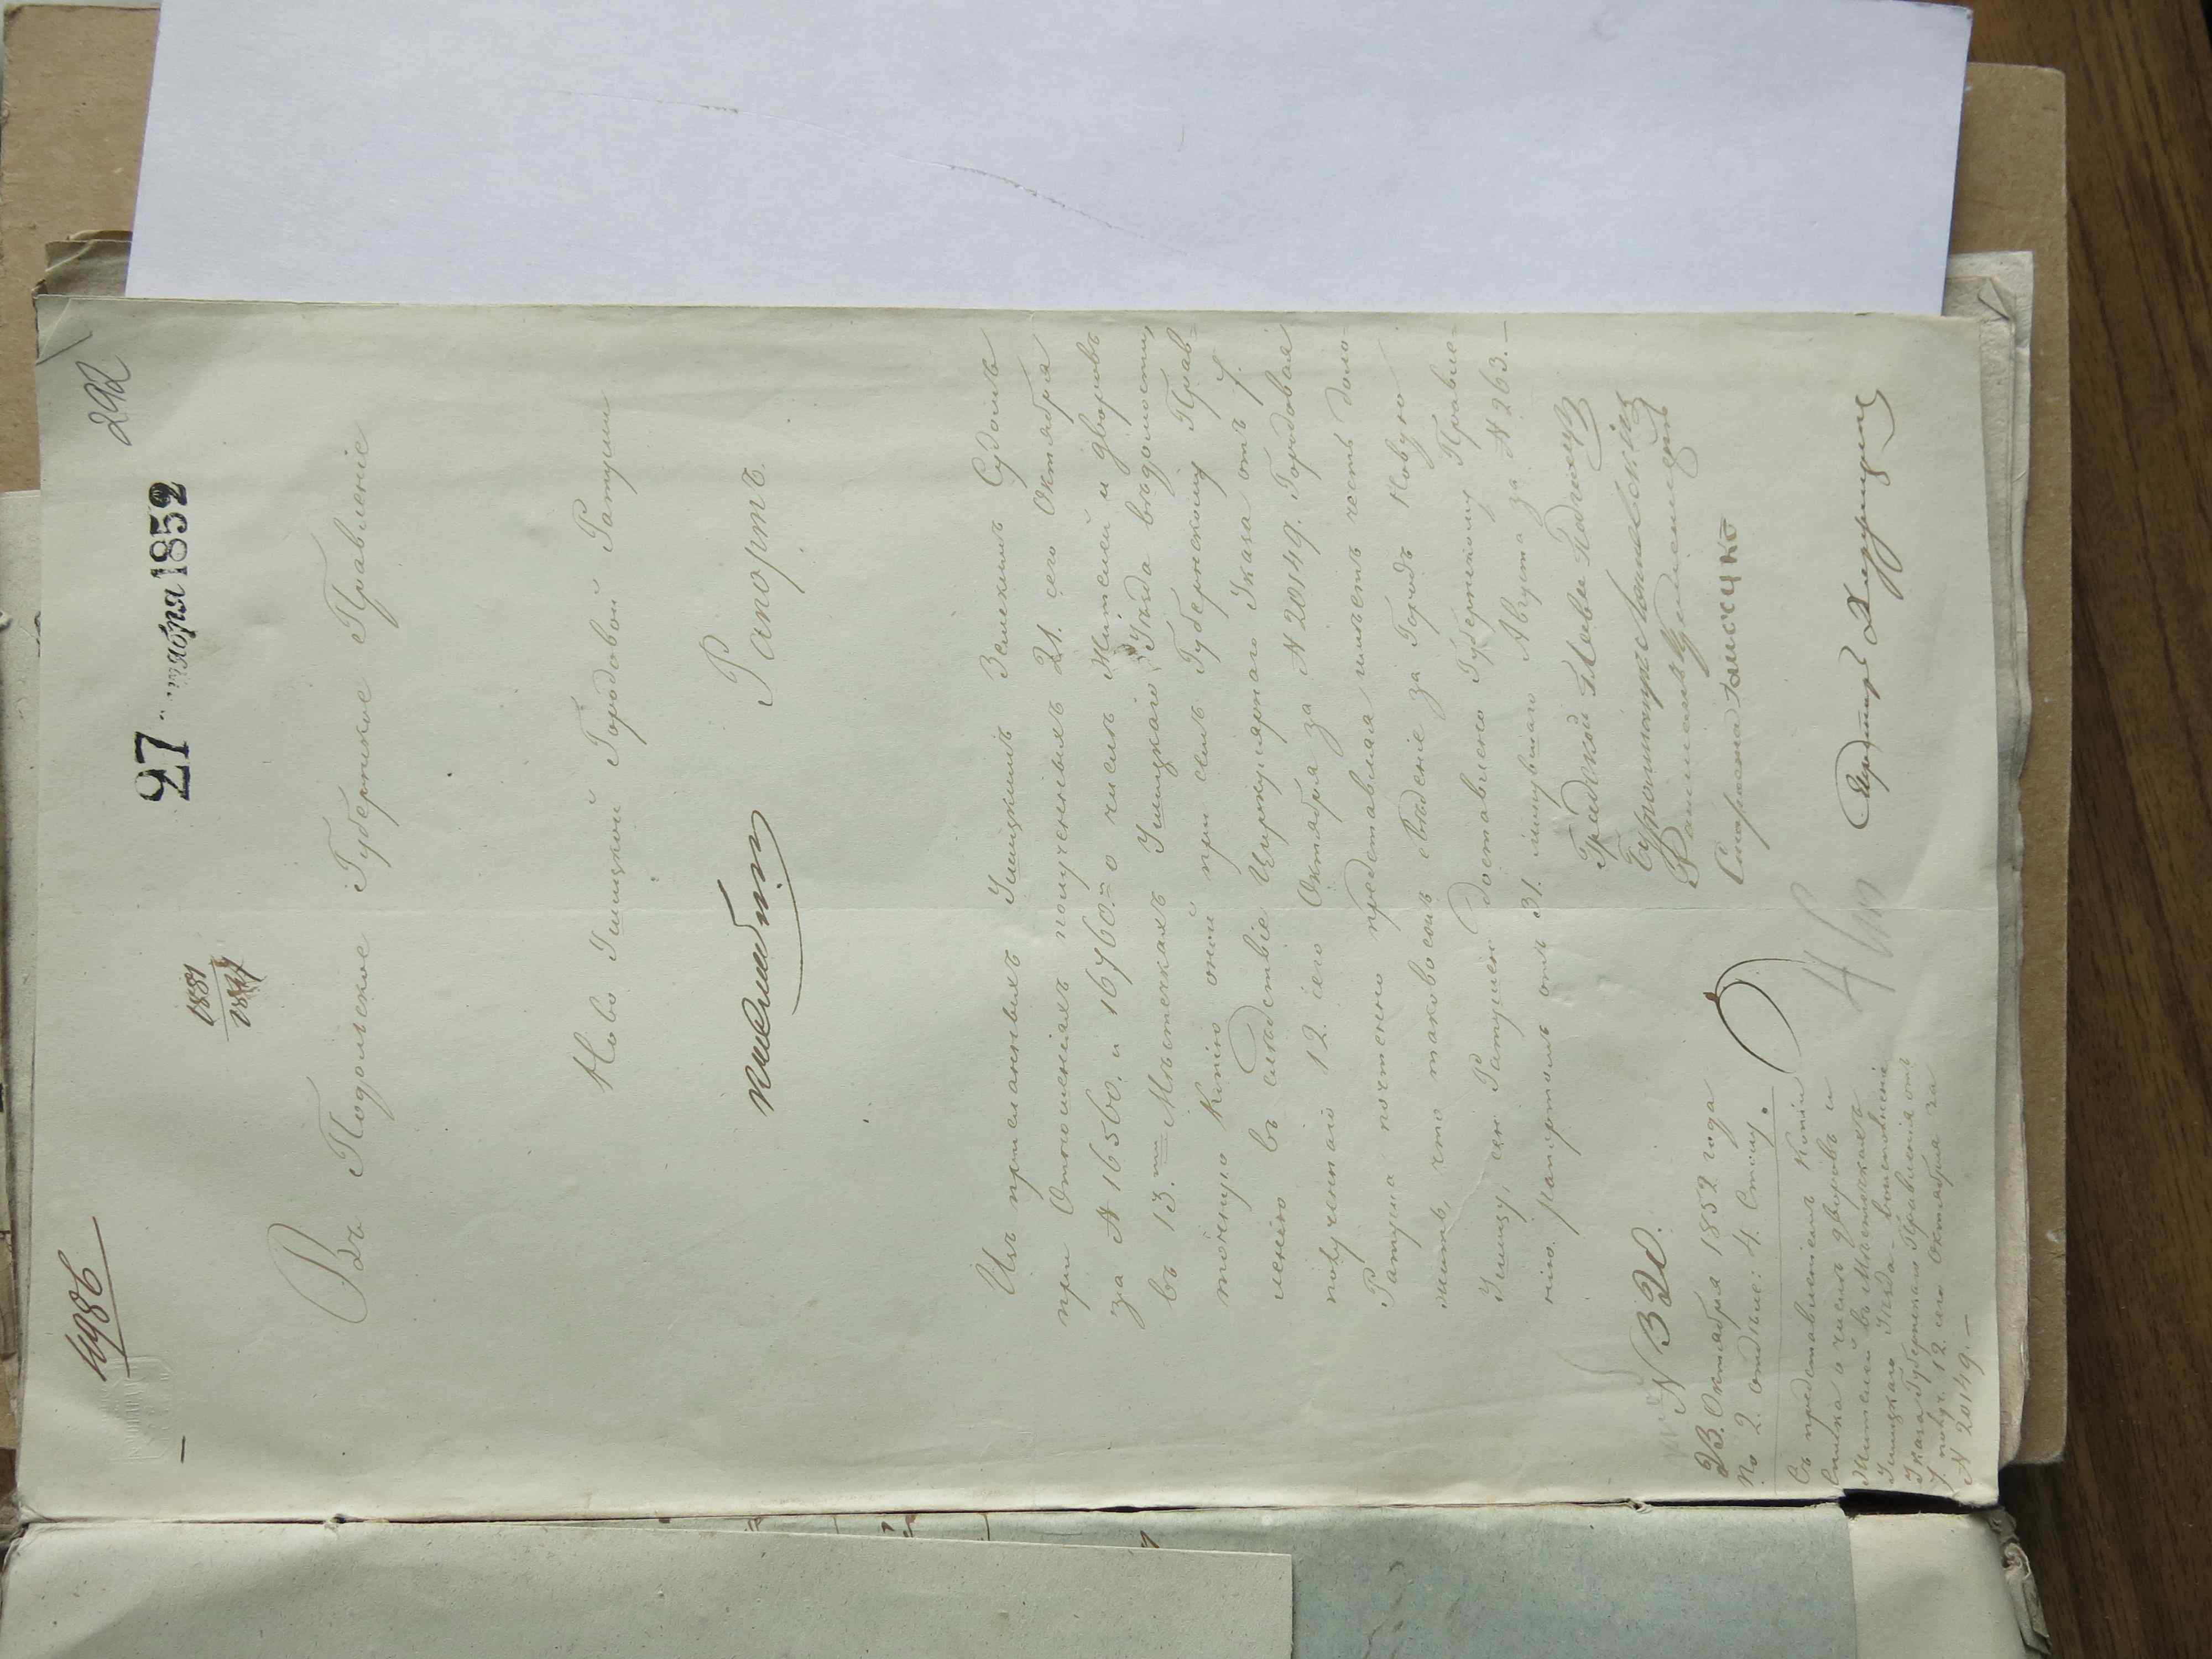 292
27 октября 1852
Въ Подольское Губернское Правленіе
Ново Ушицкой Городовой Ратуши
Рапортъ.
Изъ присланныхъ Ушицкимъ Земскимъ Судомъ
при Отношеніяхъ полученныхъ 21. сего Октября
за № 16560. и 16760.= о числѣ Жителей и дворовъ
въ 13.ти Мѣстечкахъ Ушицкаго Уѣзда вѣдомостей,
точную Копію оной при семъ Губернскому Прав=
ленію въ слѣдствіе Циркулярнаго Указа отъ 7.
полученнаго 12. сего Октября за № 20149. Городовая
Ратуша почтенно представляя имѣетъ честь доло-
жить, что таковое свѣденіе за Городъ Новую
Ушицу, сею Ратушею доставлено Губернскому Правле-
нію рапортомъ отъ 31. минувшаго Августа за № 263.—
Градской Глава
Бургомистръ
Ратманъ
Секретарь
№ 320.
23. Октября 1852 года
По 2. отдѣлѣ: 4. Столу.
Съ представленіемъ Копіи
Списка о числѣ дворовъ и
Жителей въ Мѣстечкахъ
Ушицкаго Уѣзда-
Указа Губернскаго Правленія отъ
7. получ. 12. сего Октября за
№ 20149.—